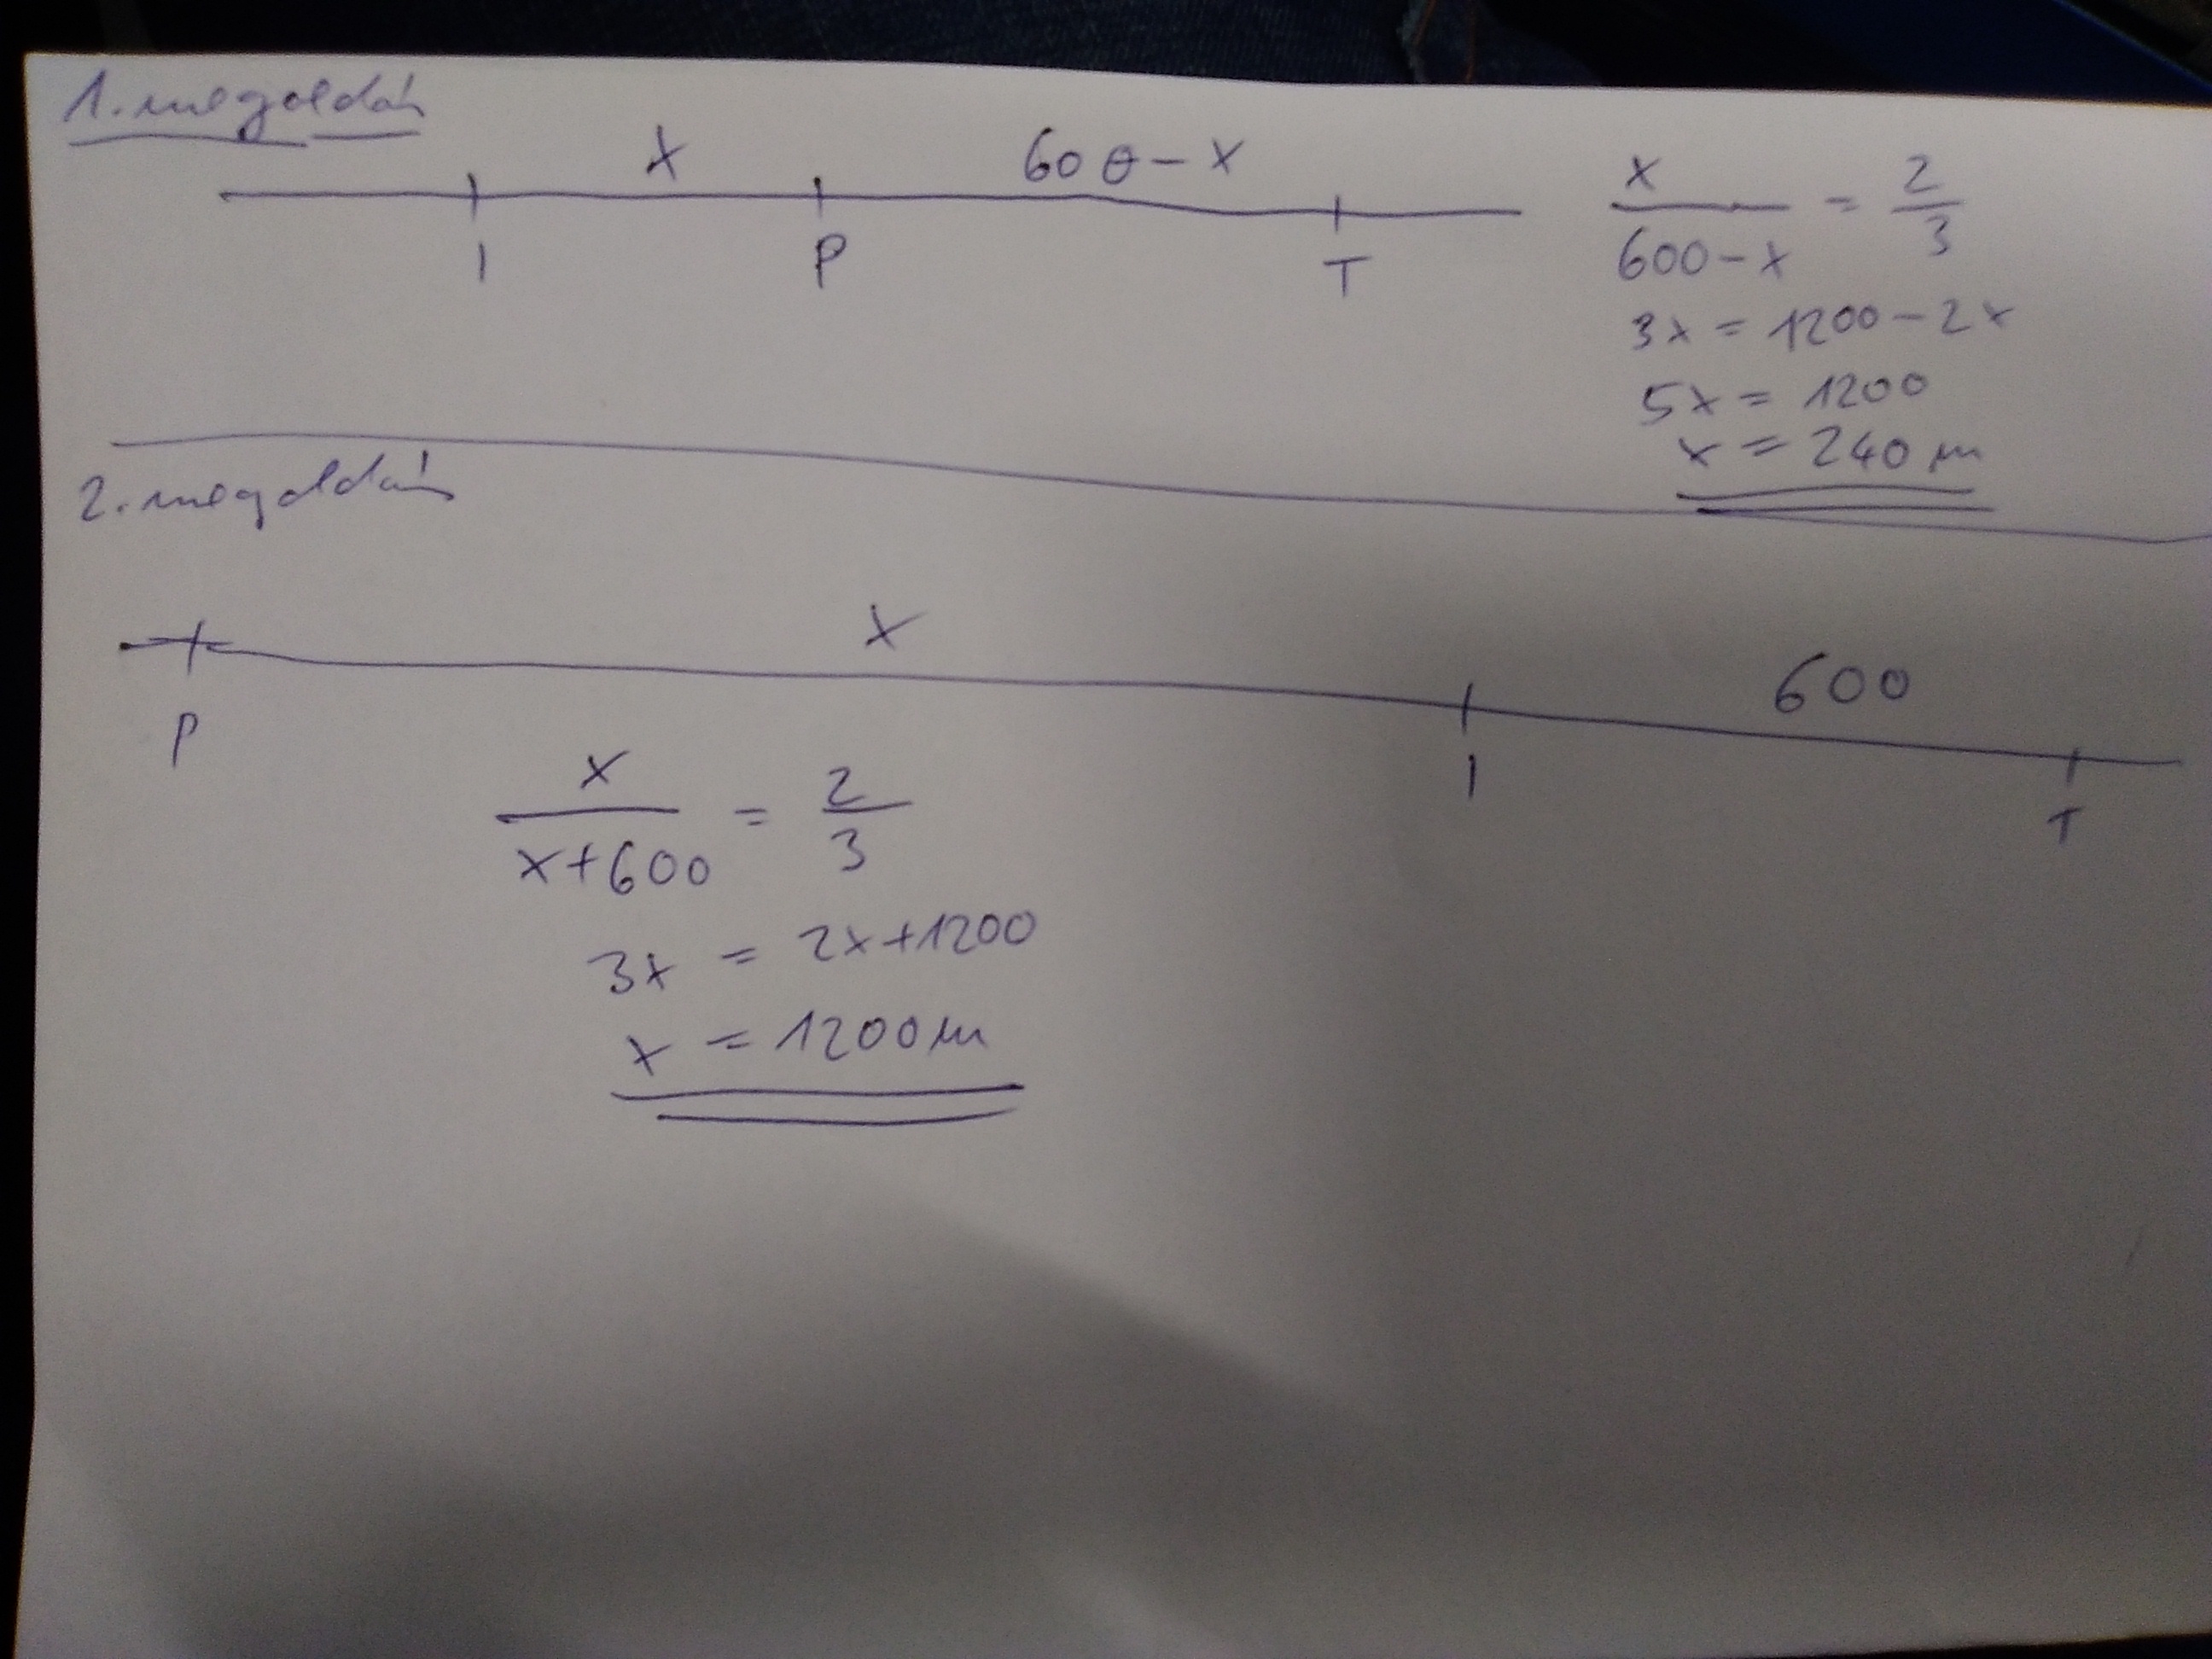 1. megoldás
x 600 - x
I P T
x / (600 - x) = 2/3
3x = 1200 - 2x
5x = 1200
x = 240 m
2. megoldás
x 600
P I T
x / (x+600) = 2/3
3x = 2x+1200
x = 1200 m